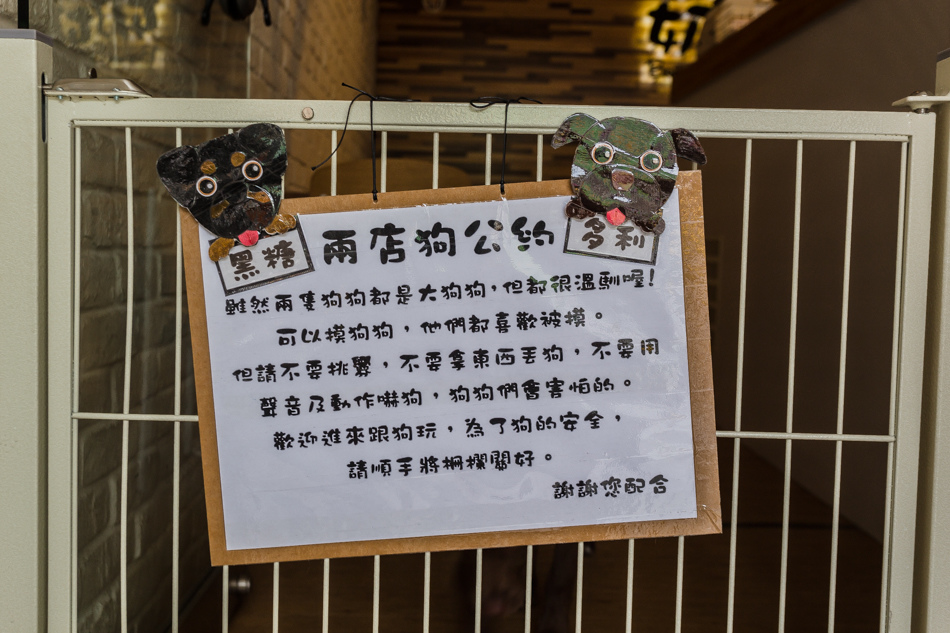 黑糖
兩店狗公約
多利
雖然兩隻狗狗都是大狗狗，但都很溫馴喔！
可以摸狗狗，他們都喜歡被摸。
但請不要挑釁，不要拿東西丟狗，不要用
聲音及動作嚇狗，狗狗們會害怕的。
歡迎進來跟狗玩，為了狗的安全，
請順手將柵欄關好。
謝謝您配合